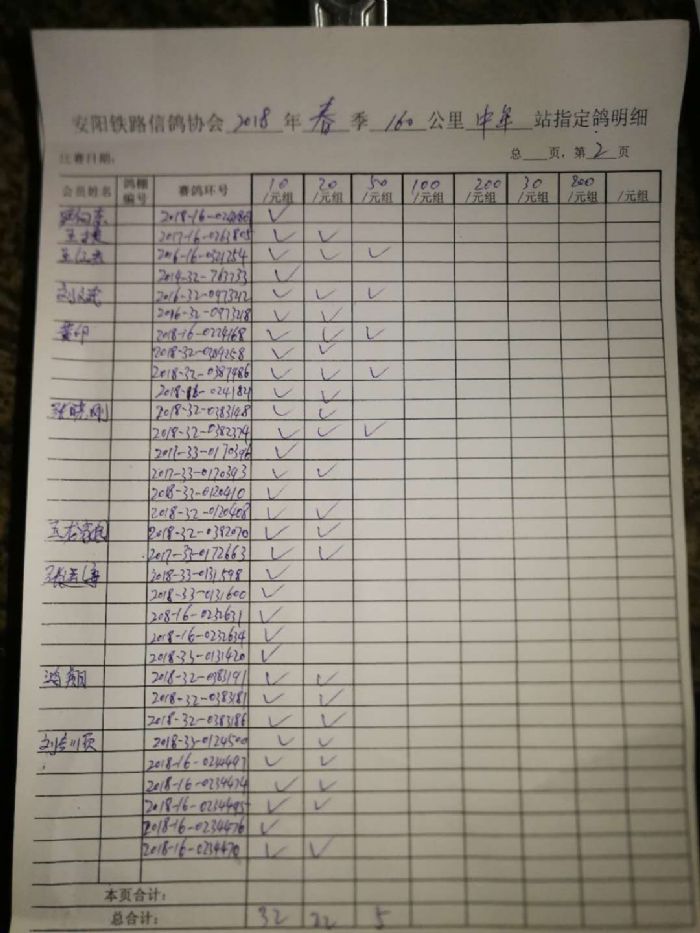 安阳铁路信鸽协会 2018 年 春 季 160 公里 中牟 站指定鸽明细
比赛日期: 总 页,第 2 页
会员姓名 鸽棚编号 赛鸽环号 10/元组 20/元组 50/元组 100/元组 200/元组 30/元组 800/元组 /元组
2018-16- ✓
2017-16-0263805 ✓ ✓
2016-16-0321254 ✓ ✓ ✓
2014-32-763233 ✓
2016-32-0973212 ✓ ✓ ✓
2016-32-0973218 ✓ ✓
黄卯 2018-16-0224168 ✓ ✓ ✓
2018-32-0384258 ✓ ✓
2018-32-0387486 ✓ ✓ ✓
2018-16-0241821 ✓ ✓
张晓刚 2018-32-0383148 ✓ ✓
2018-32-0382374 ✓ ✓ ✓
2017-33-0170396 ✓
2017-33-0170393 ✓ ✓
2018-33-0120410 ✓
2018-32-0120408 ✓ ✓
2018-32-0382070 ✓ ✓
2017-33-0172663 ✓ ✓
2018-33-0131598 ✓
2018-33-0131600 ✓
208-16-0232631 ✓
2018-16-0232634 ✓
2018-33-0131420 ✓
鸿翔 2018-32-0383191 ✓ ✓
2018-32-0383181 ✓ ✓
2018-32-0383186 ✓ ✓
2018-33-0124500 ✓ ✓
2018-16-0234497 ✓ ✓
2018-16-0234474 ✓ ✓
2018-16-0234495 ✓ ✓
2018-16-0234476 ✓
2018-16-0234470 ✓ ✓
本页合计:
总合计: 32 22 5